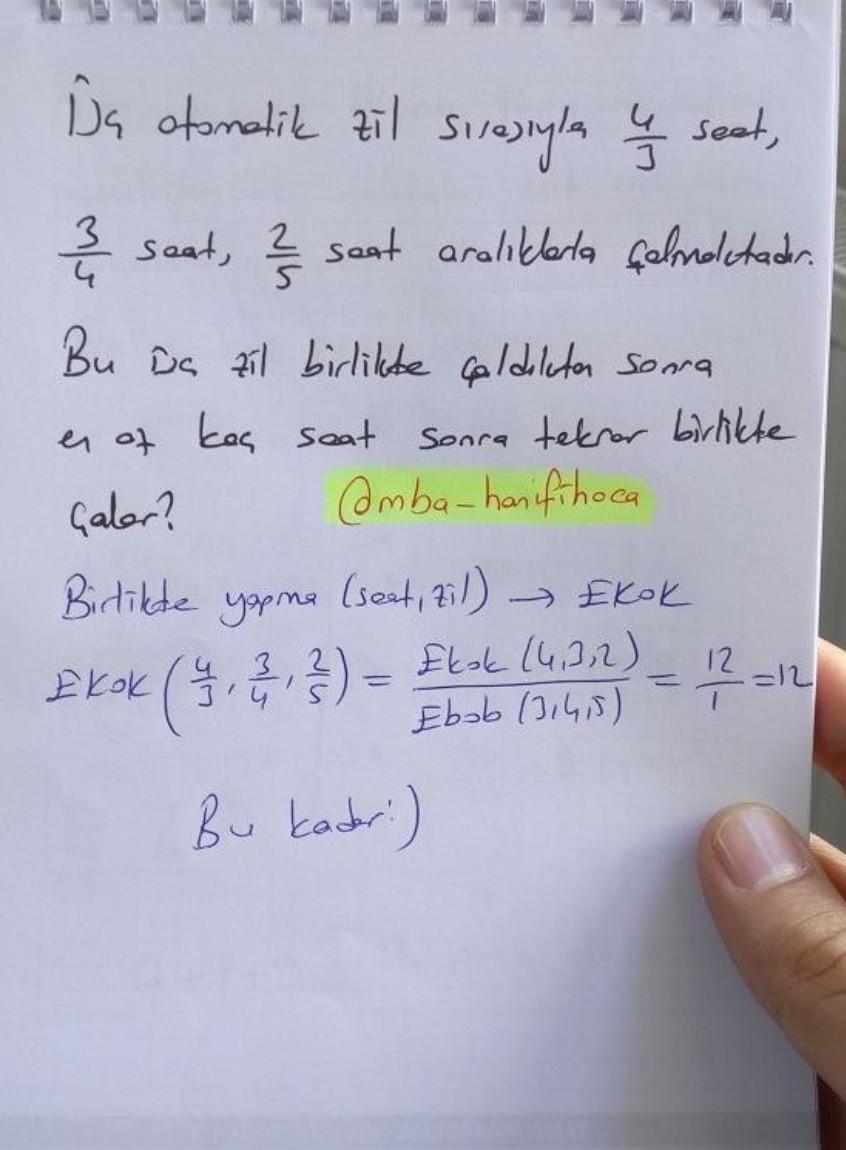 Üç otomatik zil sırasıyla 4/3 saat,
3/4 saat, 2/5 saat aralıklarla çalmaktadır.
Bu üç zil birlikte çaldıktan sonra
en az kaç saat sonra tekrar birlikte
çalar? @mba_hanifihoca
Birlikte yapma (saat, zil) → EKOK
EKOK (4/3, 3/4, 2/5) = Ekok (4,3,2) / Ebob (3,4,5) = 12/1 = 12
Bu kadar :)